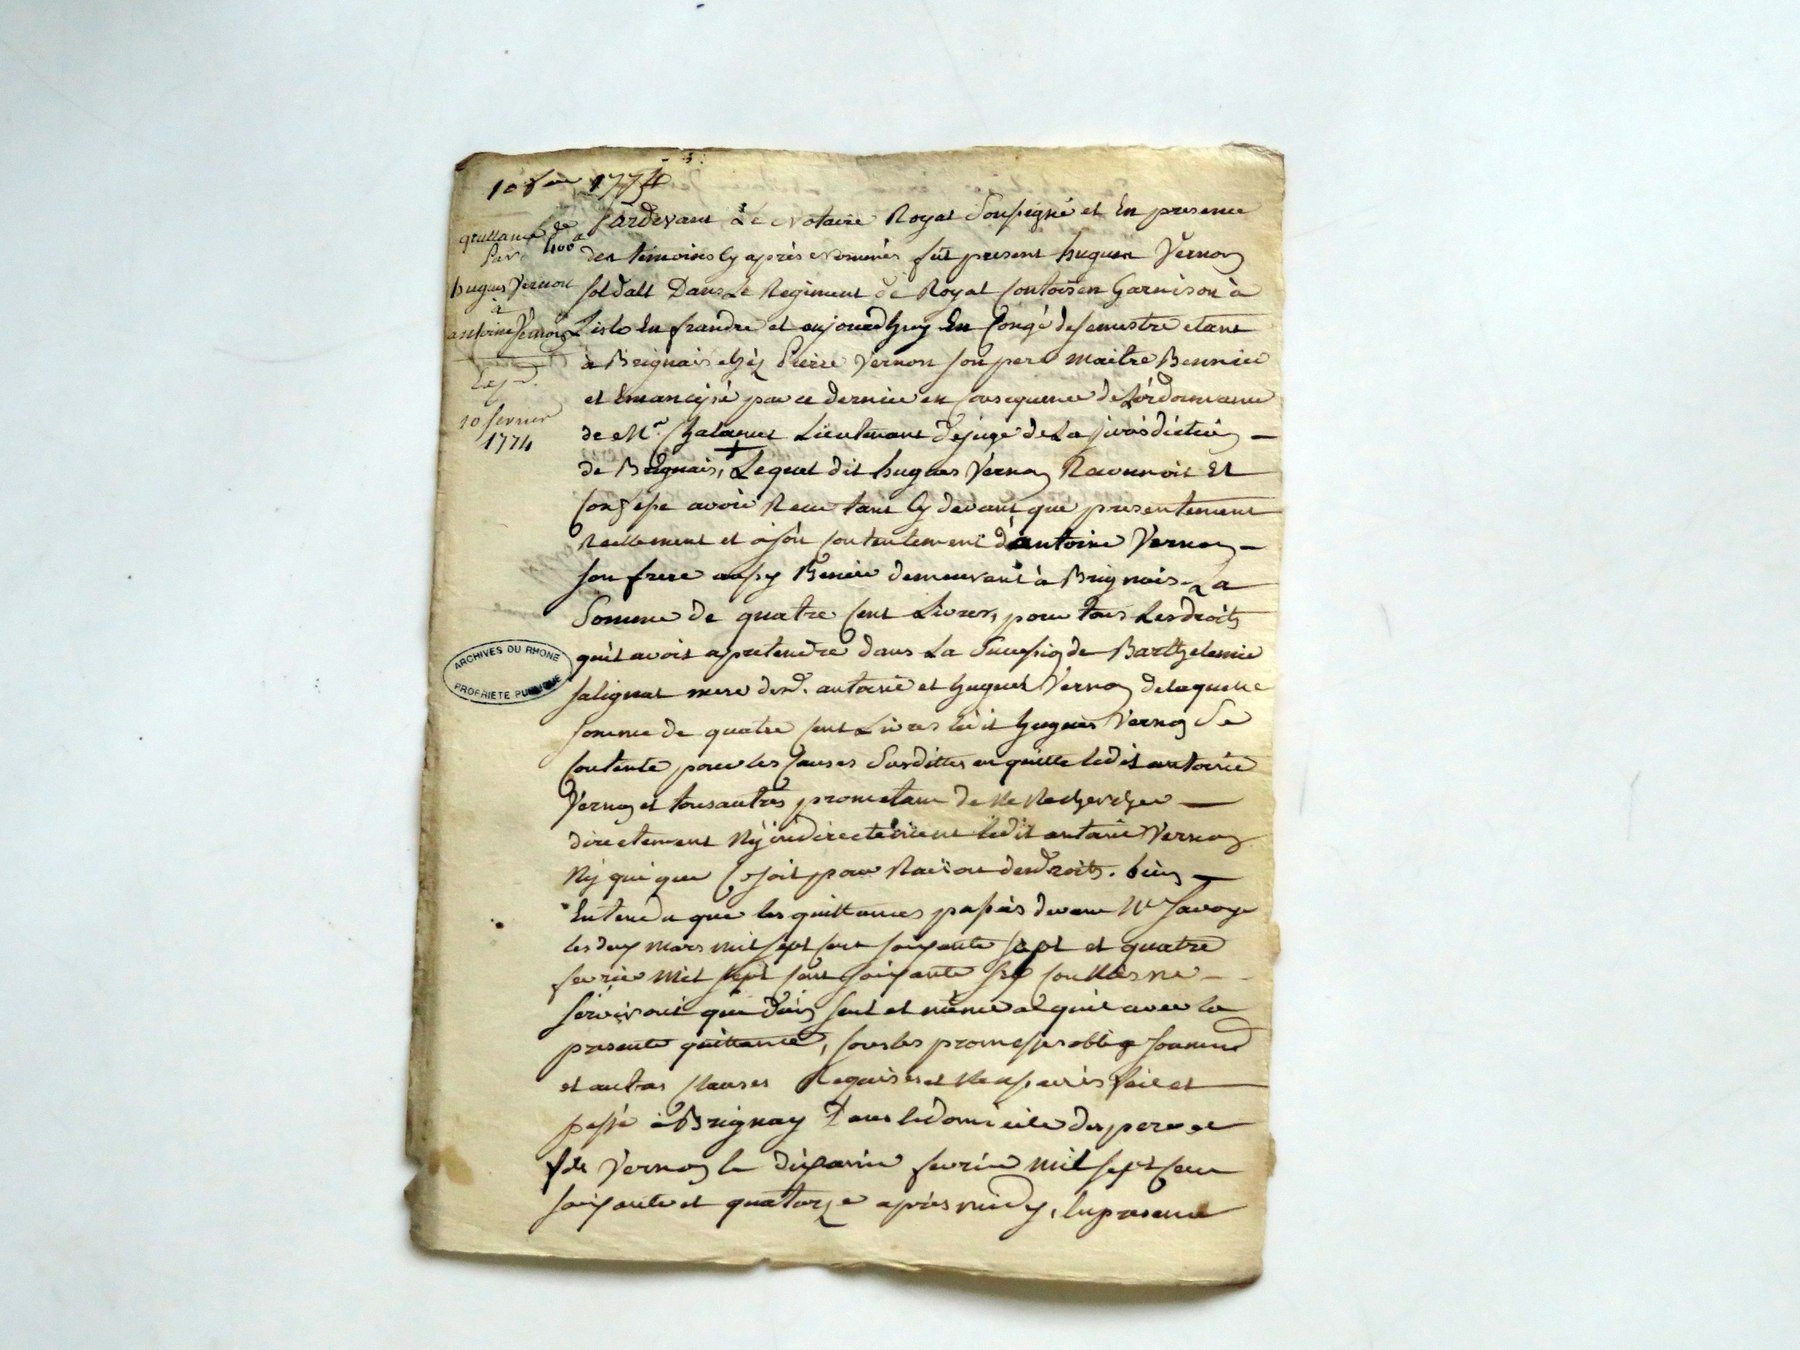 10 fev 1774
quittance de
par 400#
hugues Vernon
à
antoine Vernon
Exp.d.
10 fevrier
1774
Pardevant Le Notaire Royal Soussigné et En presence
des temoins Cy après nommés fut present hugues Vernon
soldatt Dans Le Regiment de Royal Contois en Garnison à
Lisle En flandre et aujourdhuy En Congé de semestre etant
à Brignais chéz Pierre Vernon son pere maitre
et Emancipé par ce dernier en Consequence de L'ordonnance
de Mr. Lieutenant de juge de La jurisdiction
de Brignais, Lequel dit hugues Vernon Reconnoit Et
Confesse avoir Receu tant Cy devant que presentement
Reellement et à son Contentement d'antoine Vernon
son frere aussy demeurant à Brignais La
Somme de quatre Cent Livres, pour tous Les droits
quil avoit a pretendre dans La Succession de Barthelemie
salignat mere desd. antoine et hugues Vernon de laquelle
somme de quatre cent Livres ledit hugues Vernon Se
Contente pour les Causes Susdittes en quitte ledit antoine
Vernon et tous autres prometant de Ne Rechercher
directement Ny indirectement ledit antoine Vernon
Ny qui que Ce soit pour Raison desdroits. bien
Entendu que les quittances passées devant Me Savoye
les deux mars mil sept cent soixante sept et quatre
fevrier mil sept cent soixante ne
serviront que d'un seul et même acquit avec la
presente quittance, sous les promesses oblig
et autres Clauses Requises et fait et
passé à Brignay Dans le domicile des pere et
fils Vernon le dixieme fevrier mil sept cent
soixante et quatorze après midy, En presence
ARCHIVES DU RHONE
PROPRIETE PUBLIQUE